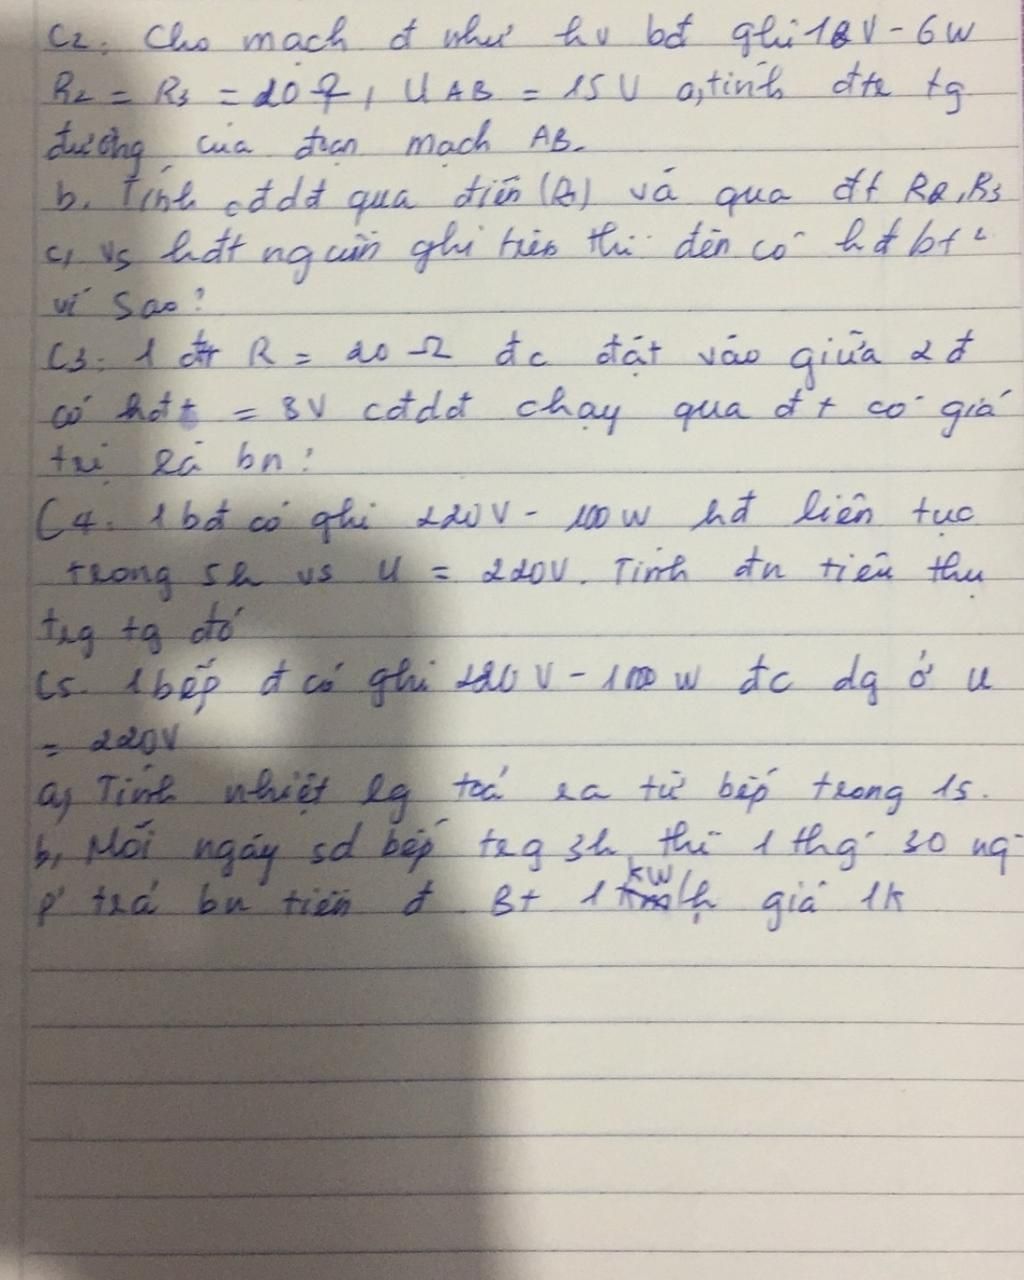 C2. Cho mạch đ như hv bđ ghi 12V - 6W
R2 = R3 = 20 Ω, UAB = 15V a, tính đtr tg
đương của đoạn mạch AB.
b. Tính cđdđ qua điện (R1) và qua đt R2, R3
c, vs hđt nguồn ghi trên thì đèn có hđ bt k
vì sao?
C3. 1 đtr R = 20 Ω đc đặt vào giữa 2 đ
có hđt = 3V cđdđ chạy qua đt có giá
trị là bn?
C4. 1 bđ có ghi 220V - 100W hđ liên tục
trong 5h vs U = 220V. Tính đn tiêu thụ
trg tg đó
C5. 1 bếp đ có ghi 220V - 1000W đc dg ở U
= 220V
a, Tính nhiệt lg toả ra từ bếp trong 1s.
b, Mỗi ngày sd bếp trg 3h thì 1 thg 30 ng
p trả bn tiền đ Bt 1 kW/h giá 1k